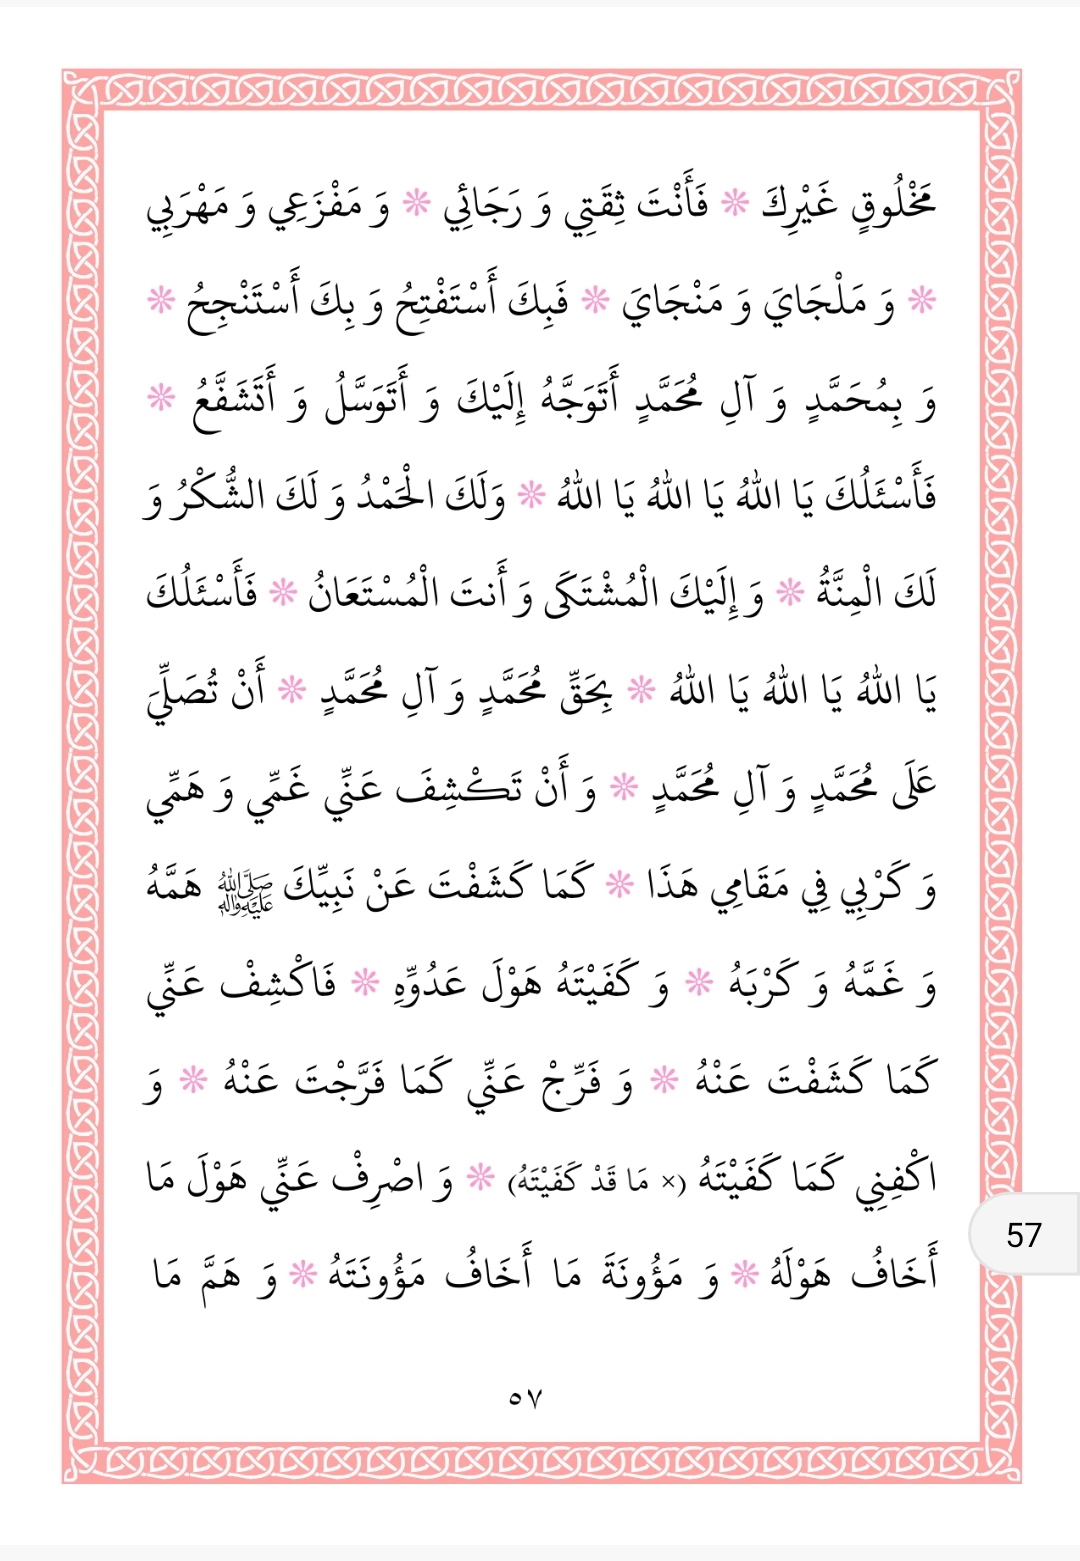 مَخْلُوقٍ غَيْرِكَ * فَأَنْتَ ثِقَتِي وَ رَجَائِي * وَ مَفْزَعِي وَ مَهْرَبِي
* وَ مَلْجَايَ وَ مَنْجَايَ * فَبِكَ أَسْتَفْتِحُ وَ بِكَ أَسْتَنْجِحُ *
وَ بِمُحَمَّدٍ وَ آلِ مُحَمَّدٍ أَتَوَجَّهُ إِلَيْكَ وَ أَتَوَسَّلُ وَ أَتَشَفَّعُ *
فَأَسْئَلُكَ يَا اللهُ يَا اللهُ يَا اللهُ * وَلَكَ الْحَمْدُ وَ لَكَ الشُّكْرُ وَ
لَكَ الْمِنَّةُ * وَ إِلَيْكَ الْمُشْتَكَى وَ أَنتَ الْمُسْتَعَانُ * فَأَسْئَلُكَ
يَا اللهُ يَا اللهُ يَا اللهُ * بِحَقِّ مُحَمَّدٍ وَ آلِ مُحَمَّدٍ * أَنْ تُصَلِّيَ
عَلَى مُحَمَّدٍ وَ آلِ مُحَمَّدٍ * وَ أَنْ تَكْشِفَ عَنِّي غَمِّي وَ هَمِّي
وَ كَرْبِي فِي مَقَامِي هَذَا * كَمَا كَشَفْتَ عَنْ نَبِيِّكَ صَلَّى اللهُ عَلَيْهِ وَآلِهِ هَمَّهُ
وَ غَمَّهُ وَ كَرْبَهُ * وَ كَفَيْتَهُ هَوْلَ عَدُوِّهِ * فَاكْشِفْ عَنِّي
كَمَا كَشَفْتَ عَنْهُ * وَ فَرِّجْ عَنِّي كَمَا فَرَّجْتَ عَنْهُ * وَ
اكْفِنِي كَمَا كَفَيْتَهُ (× مَا قَدْ كَفَيْتَهُ) * وَ اصْرِفْ عَنِّي هَوْلَ مَا
أَخَافُ هَوْلَهُ * وَ مَؤُونَةَ مَا أَخَافُ مَؤُونَتَهُ * وَ هَمَّ مَا
57
٥٧